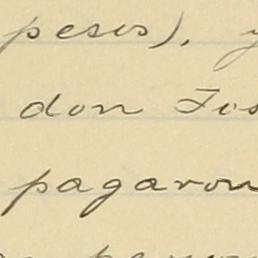 pesos), y
don Jos
pagaron